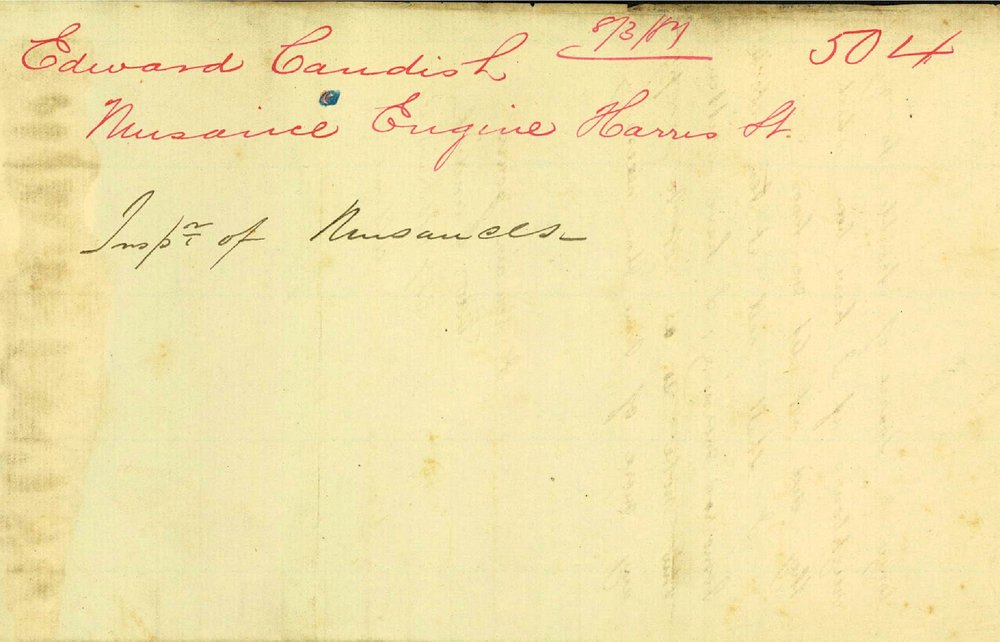 Edward Candish 8/3/87 504
Nusance Engine Harris St.
Inspr of Nusances